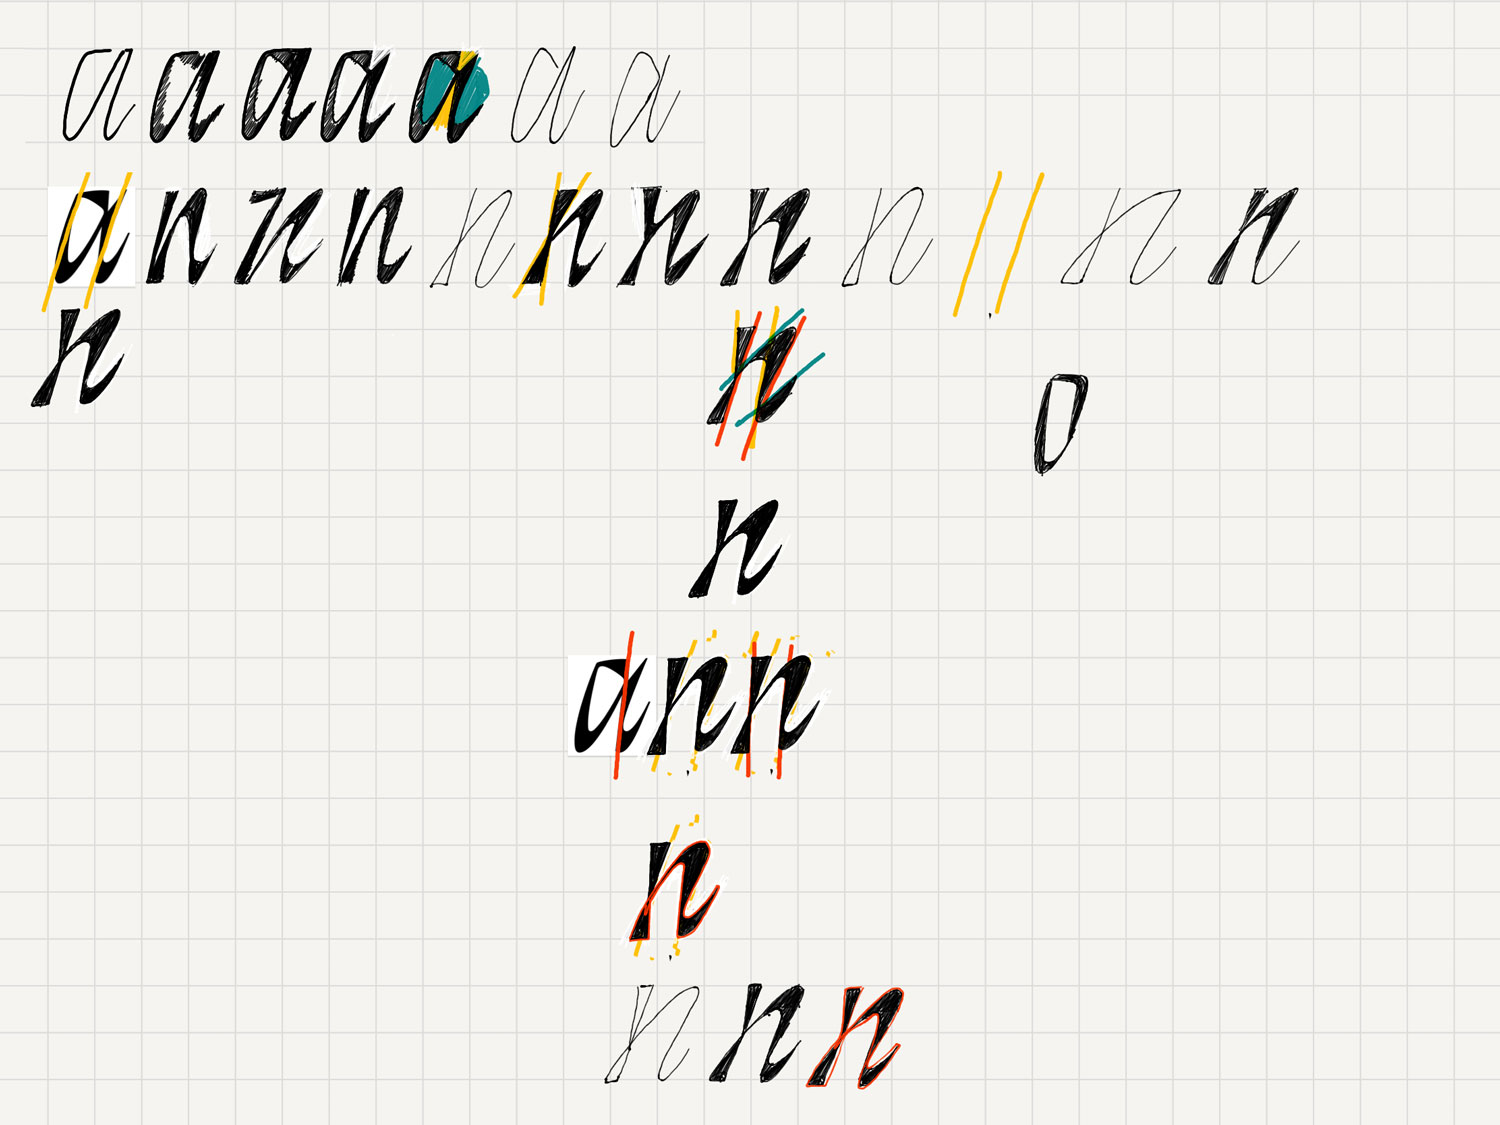 a a a a a a a
a n n n n n n n n n n
n n
o
n
a n n
n
n n n